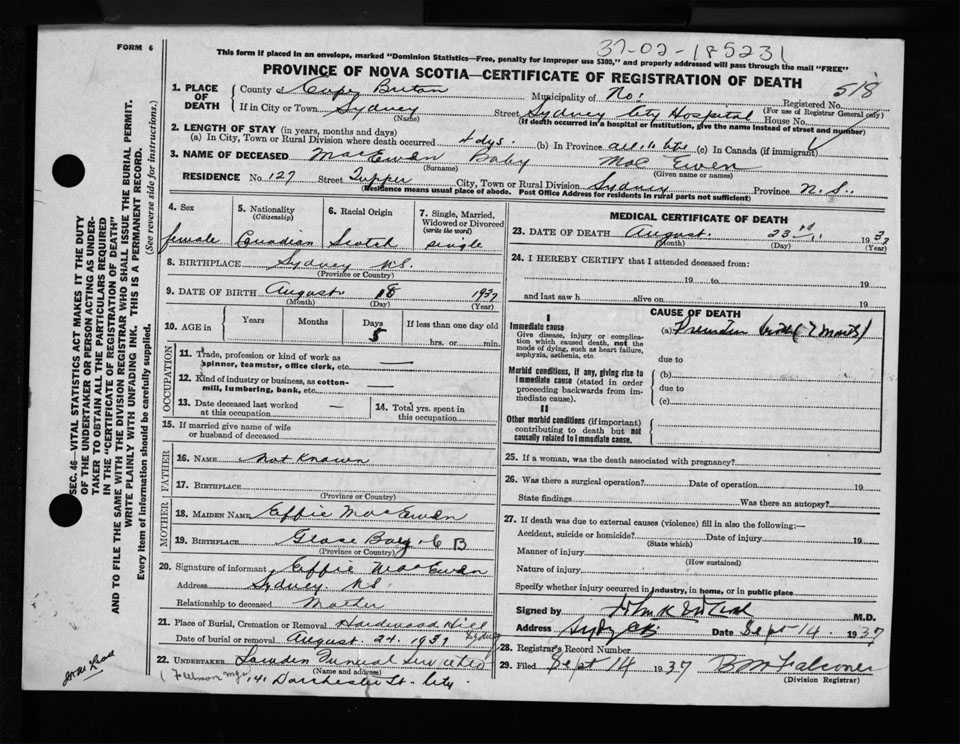 FORM 6
37-02-185231
This form if placed in an envelope, marked "Dominion Statistics—Free, penalty for improper use $300," and properly addressed will pass through the mail "FREE"
PROVINCE OF NOVA SCOTIA—CERTIFICATE OF REGISTRATION OF DEATH
518
1. PLACE OF DEATH
County of Cape Breton Municipality of No. Registered No.
(For use of Registrar General only)
If in City or Town Sydney Street Sydney City Hospital House No.
(Name) (If death occurred in a hospital or institution, give the name instead of street and number)
2. LENGTH OF STAY (in years, months and days)
(a) In City, Town or Rural Division where death occurred 4 dys. (b) In Province all its (c) In Canada (if immigrant)
3. NAME OF DECEASED MacEwen Baby Mac Ewen
(Surname) (Given name or names)
RESIDENCE No. 127 Street Tupper City, Town or Rural Division Sydney Province N.S.
(Residence means usual place of abode. Post Office Address for residents in rural parts not sufficient)
4. Sex 5. Nationality (Citizenship) 6. Racial Origin 7. Single, Married, Widowed or Divorced (write the word)
female Canadian Scotch single
8. BIRTHPLACE Sydney N.S.
(Province or Country)
9. DATE OF BIRTH August 18 1937
(Month) (Day) (Year)
10. AGE in Years Months Days If less than one day old
5 hrs. or min.
OCCUPATION
11. Trade, profession or kind of work as spinner, teamster, office clerk, etc. —
12. Kind of industry or business, as cotton-mill, lumbering, bank, etc. —
13. Date deceased last worked at this occupation — 14. Total yrs. spent in this occupation
15. If married give name of wife or husband of deceased
FATHER
16. NAME Not Known
17. BIRTHPLACE
(Province or Country)
MOTHER
18. MAIDEN NAME Effie MacEwen
19. BIRTHPLACE Glace Bay C B
(Province or Country)
20. Signature of informant Effie MacEwen
Address Sydney N.S.
Relationship to deceased Mother
21. Place of Burial, Cremation or Removal Hardwood Hill Sydney
Date of burial or removal August 24. 1937
22. UNDERTAKER Lowden Funeral Service
(Name and address)
141 Dorchester St. City.
MEDICAL CERTIFICATE OF DEATH
23. DATE OF DEATH August 23rd 1937
(Month) (Day) (Year)
24. I HEREBY CERTIFY that I attended deceased from:
19 to 19
and last saw h alive on 19
CAUSE OF DEATH
I
Immediate cause
Give disease, injury or complication which caused death, not the mode of dying, such as heart failure, asphyxia, asthenia, etc.
(a) Premature birth (7 months)
due to
Morbid conditions, if any, giving rise to immediate cause (stated in order proceeding backwards from immediate cause).
(b)
due to
(c)
II
Other morbid conditions (if important) contributing to death but not causally related to immediate cause.
25. If a woman, was the death associated with pregnancy?
26. Was there a surgical operation? Date of operation 19
State findings Was there an autopsy?
27. If death was due to external causes (violence) fill in also the following:—
Accident, suicide or homicide? Date of injury 19
(State which)
Manner of injury
(How sustained)
Nature of injury
Specify whether injury occurred in industry, in home, or in public place
Signed by M.D.
Address Date Sept 14. 1937
28. Registrar's Record Number
29. Filed Sept 14 1937 B M Falconer
(Division Registrar)
SEC. 46—VITAL STATISTICS ACT MAKES IT THE DUTY
OF THE UNDERTAKER OR PERSON ACTING AS UNDER-
TAKER TO OBTAIN ALL THE PARTICULARS REQUIRED
IN THE "CERTIFICATE OF REGISTRATION OF DEATH"
AND TO FILE THE SAME WITH THE DIVISION REGISTRAR WHO SHALL ISSUE THE BURIAL PERMIT.
WRITE PLAINLY WITH UNFADING INK. THIS IS A PERMANENT RECORD.
Every item of information should be carefully supplied. (See reverse side for instructions.)